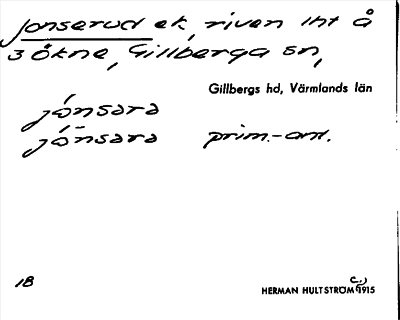 Jonserud ek, riven int å
3 Ökne, Gillberga sn,
Gillbergs hd, Värmlands län
jónsara
jṓnsara prim.-ant.
IB
HERMAN HULTSTRÖM c.) 1915